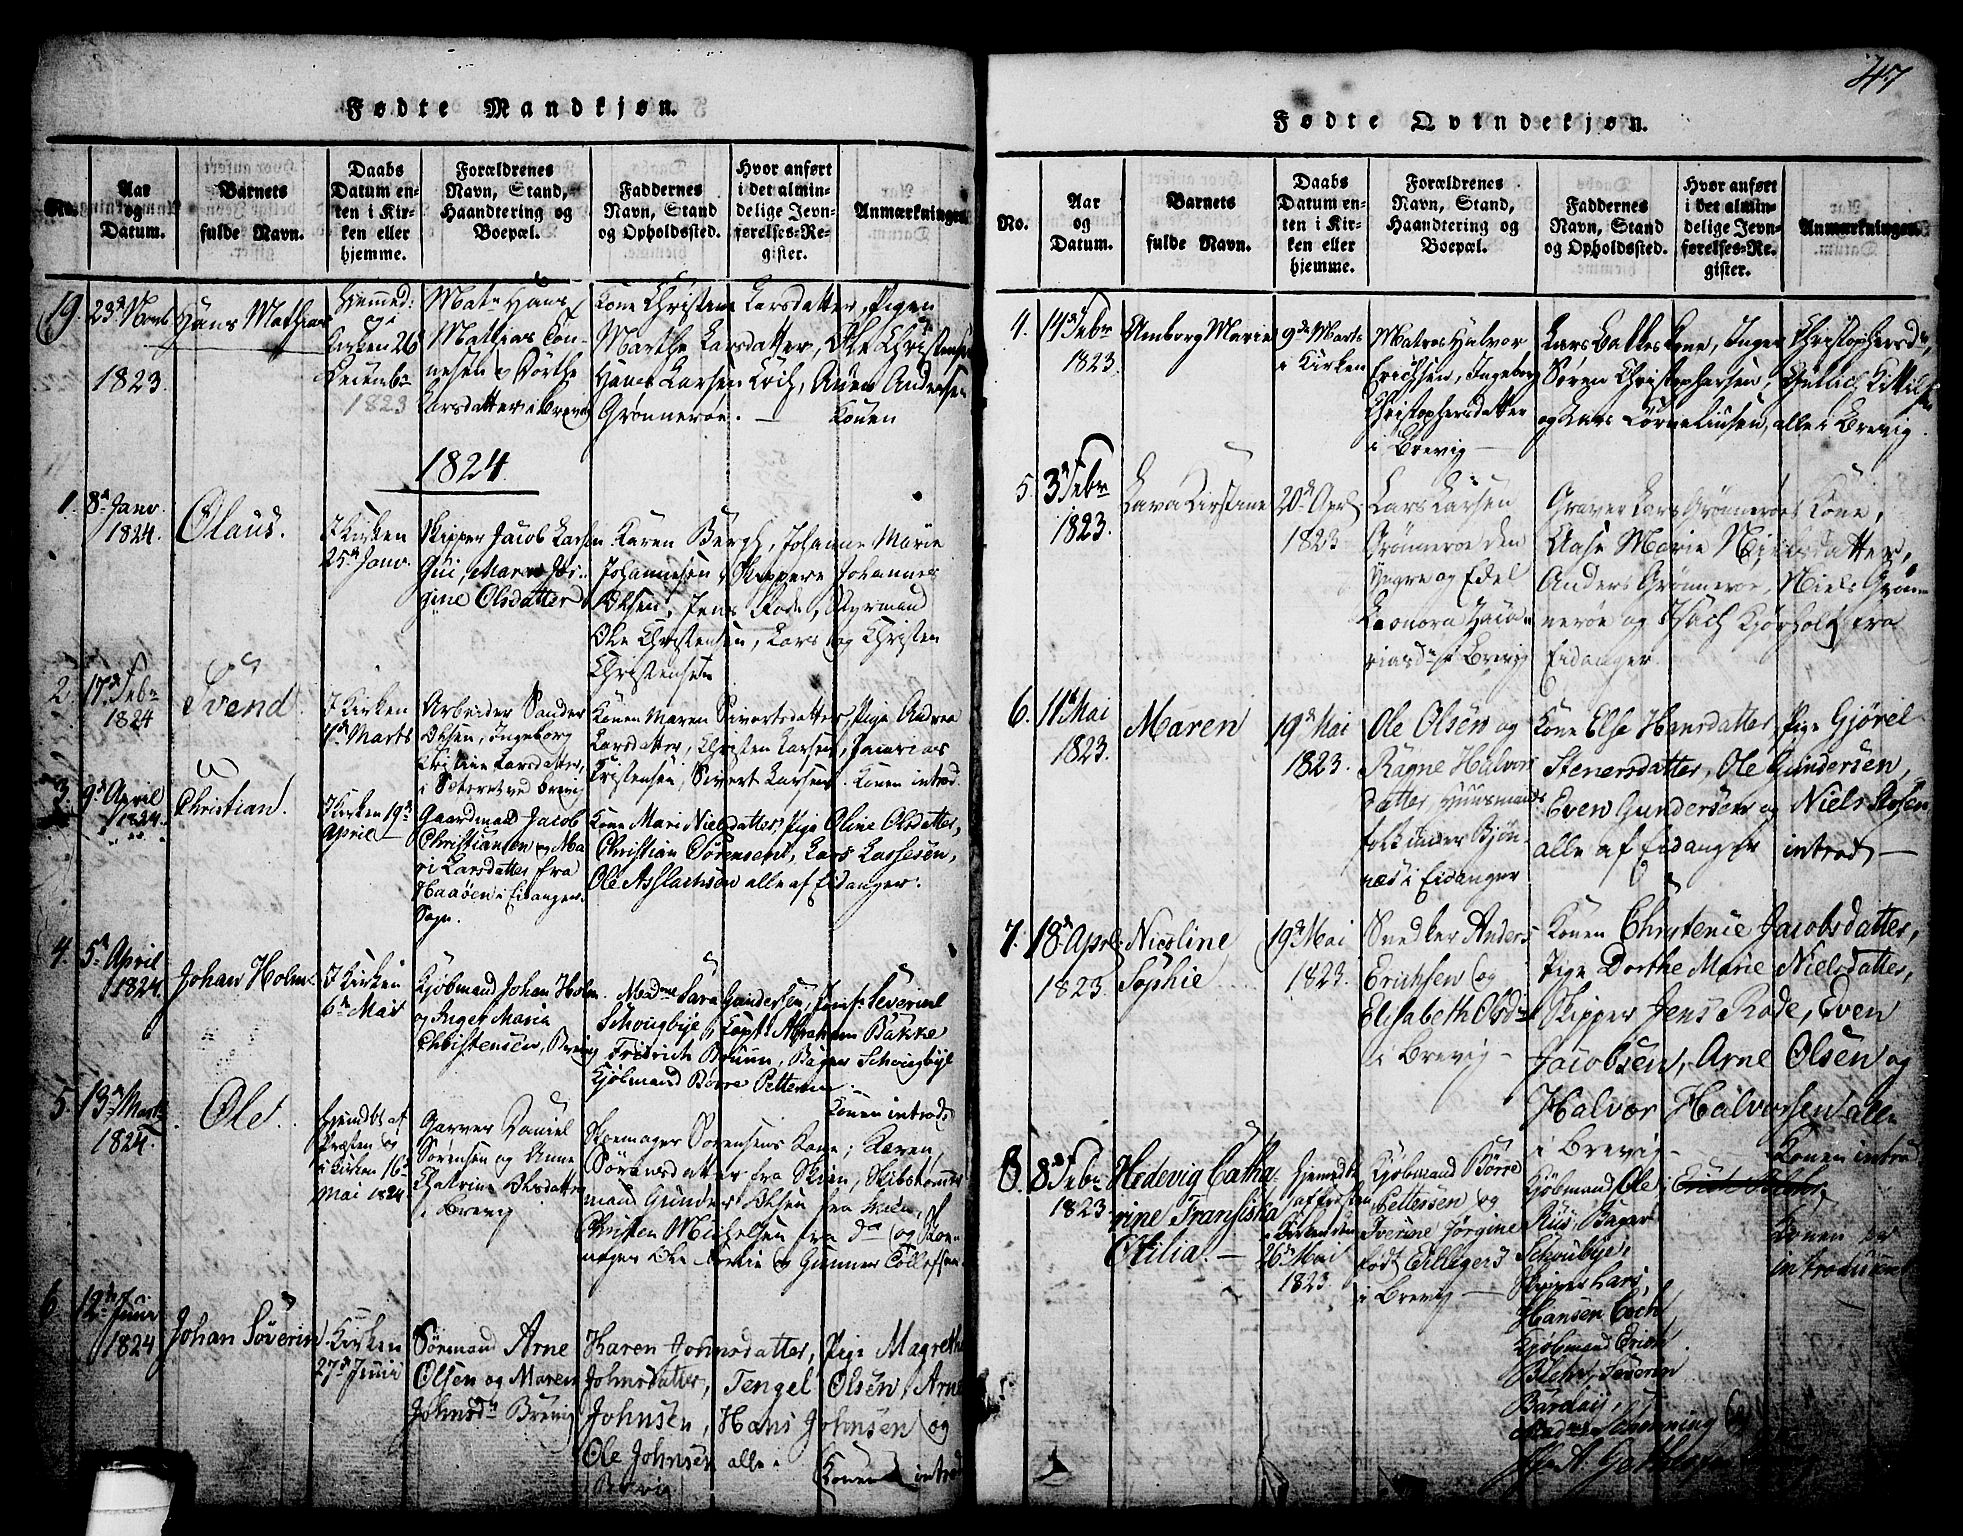 Fødte Mandkjøn.
No.
Aar og Datum.
Barnets fulde Navn.
Daabs Datum enten i Kirken eller hjemme.
Forældrenes Navn, Stand, Haandtering og Boepæl.
Faddernes Navn, Stand og Opholdssted.
Hvor anført i det almindelige Jevnførelses-Register.
Anmærkninger.
19.
1823
Hans Mathias
Hiemmed:
og i
Kirken 26
Decembr
1823
Mats Hans
Mathias Ton-
nesen og Dorthe
Larsdatter i Brevig
Kone Christene Larsdatter, Pigen
Marthe Larsdatter, Ole Christensen
Hans Larsen Koch, Anen Andersen
Grønneroe. — Konen
1824.
1.
8d Janr
1824.
Olaus.
I Kirken
25d Janr
Skipper Jacob Larsen
Gui, Maren Jør-
gine Olsdatter
Karen Bergh, Johanne Marie
Johannesen, Skippere Johannes
Olsen, Jens Rode, Styrmand
Ole Christensen, Lars og Christen
Christensen
2
17d Febr
1824
Svend
I Kirken
7d Marts
Arbeider Sander
Olsen, Ingeborg
Kirstine Larsdatter,
i Sæteret ved Brevig
Konen Maren Sivertsdatter, Pige Andrea
Larsdatter, Christen Larsen, Zacarias
Kristensen, Sivert Larsen. Konen introd.
3.
9d April
1824.
Christian.
I Kirken 19d
April
Gaardmand Jacob
Christiansen og Ma
ri Larsdatter fra
Haaøen i Eidanger
Sogn.
Kone Mari Nielsdatter, Pige Oline Olsdatter,
Christian Sørensen, Lars Lassesen,
Ole Asslachsen alle af Eidanger.
4.
5d April
1824.
Johan Holm
I Kirken
6d Mai
Kjøbmand Johan Holm
og Inger Maria
Christensen, Brevig
Mad me Sara Gundersen, Jomf. Severine
Schougbye, Kapt. Abraham Bakke
Fridrich Bruun, Bager Schougbye
Kjøbmand Børre Petersen. —
Konen introd
5.
13d Marts
1824.
Ole
Hjemdbt af
Præsten og
i Kirken 16d
Mai 1824
Garver Daniel
Sørensen og Anne
Chatrine Olsdatter
i Brevig
Skomager Sørensens Kone; Karen
Sørensdatter fra Skien, Skibstømmer
mand Gunder Olsen fra Skien,
Christen Michelsen fra do og
6
12te Junii
1824
Johan Søverin
I Kirken
27d Junii
Sømand Arne
Olsen og Maren
Johnsdr Brevig
Karen Johnsdatter, Pige Magrethe
Johnsdatter, Tengel Olsen, Arne
Johnsen, Hans Johnsen og
Ole Johnsen alle i
Brevig
Konen introd
47
Fødte Qvindekjøn.
No.
Aar og Datum.
Barnets fulde Navn.
Daabs Datum enten i Kirken eller hjemme.
Forældrenes Navn, Stand, Haandtering og Boepæl.
Faddernes Navn, Stand og Opholdssted.
Hvor anført i det almindelige Jevnførelses-Register.
Anmærkninger.
4.
14d Febr
1823.
Amborg Marie
9de Marts
i Kirken
Matros Halvor
Erichsen, Ingeborg
Christophersdatter
i Brevig —
Lars Bakkes Kone, Inger Christophersdr,
Søren Christophersen, Gullich Kittilsen
og Lars Corneliusen, alle i Brevig
5.
3d Febr
1823.
Lava Kirstine
1823
Lars Larsen
Grønneroe den
Yngre og Edel
Leonora Zaca-
riasdr Brevig
Graver Lars Grønneroes Kone,
Aase Marie Nielsdatter,
Anders Grønneroe, Niels Grøn-
neroe og Isach Kjørholt fra
Eidanger.
6.
11d Mai
1823.
Maren
19d Mai
1823.
Ole Olsen og
Ragne Halvors
datter, Huusmands
folk under Bjøn-
næs i Eidanger
Kone Else Hansdatter Pige Gjørel
Stenersdatter, Ole Gundersen,
Even Gundersen og Niels
alle af Eidanger introd —
7.
18d April
1823.
Nicoline
Sophie
19d Mai
1823.
Snedker Anders
Erichsen og
Elisabeth Olsdr
i Brevig —
Konen Christenie Jacobsdatter,
Pige Dorthe Marie Nielsdatter,
Skipper Jens Rode, Even
Jacobsen, Arne Olsen og
Halvor Halvorsen alle
i Brevig —
Konen introd
8.
8d Febr
1823
Hedevig Catha-
rine Fransiska
Otilia. —
Hjemedbt
af Præsten
i Kirken den
26d Mai
1823.
Kjøbmand Børre
Pettersen og
Iverine Jørgine
født Eilligers
i Brevig —
Kjøbmand Ole
Bager
Schoubye,
Skipper Lars
Hansen Coch
Kjøbmand Erich
Blehr, Severin
Konen er
introduceret